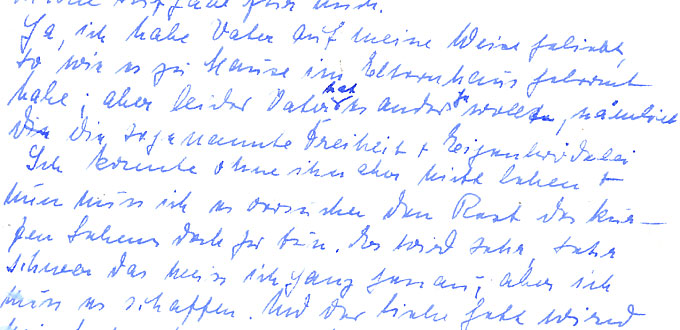 Ja, ich habe Vater auf meine Weise geliebt,
so wie es zu Hause im Elternhaus gelernt
habe; aber leider Vater hat es anders gewollt, nämlich
die sogenannte Freiheit +
Ich konnte ohne ihn aber nicht leben +
nun muss ich es versuchen den Rest des kur-
zen Lebens doch zu tun. Es wird sehr, sehr
schwer das weiss ich ganz genau; aber ich
muss es schaffen. Und der liebe Gott wird